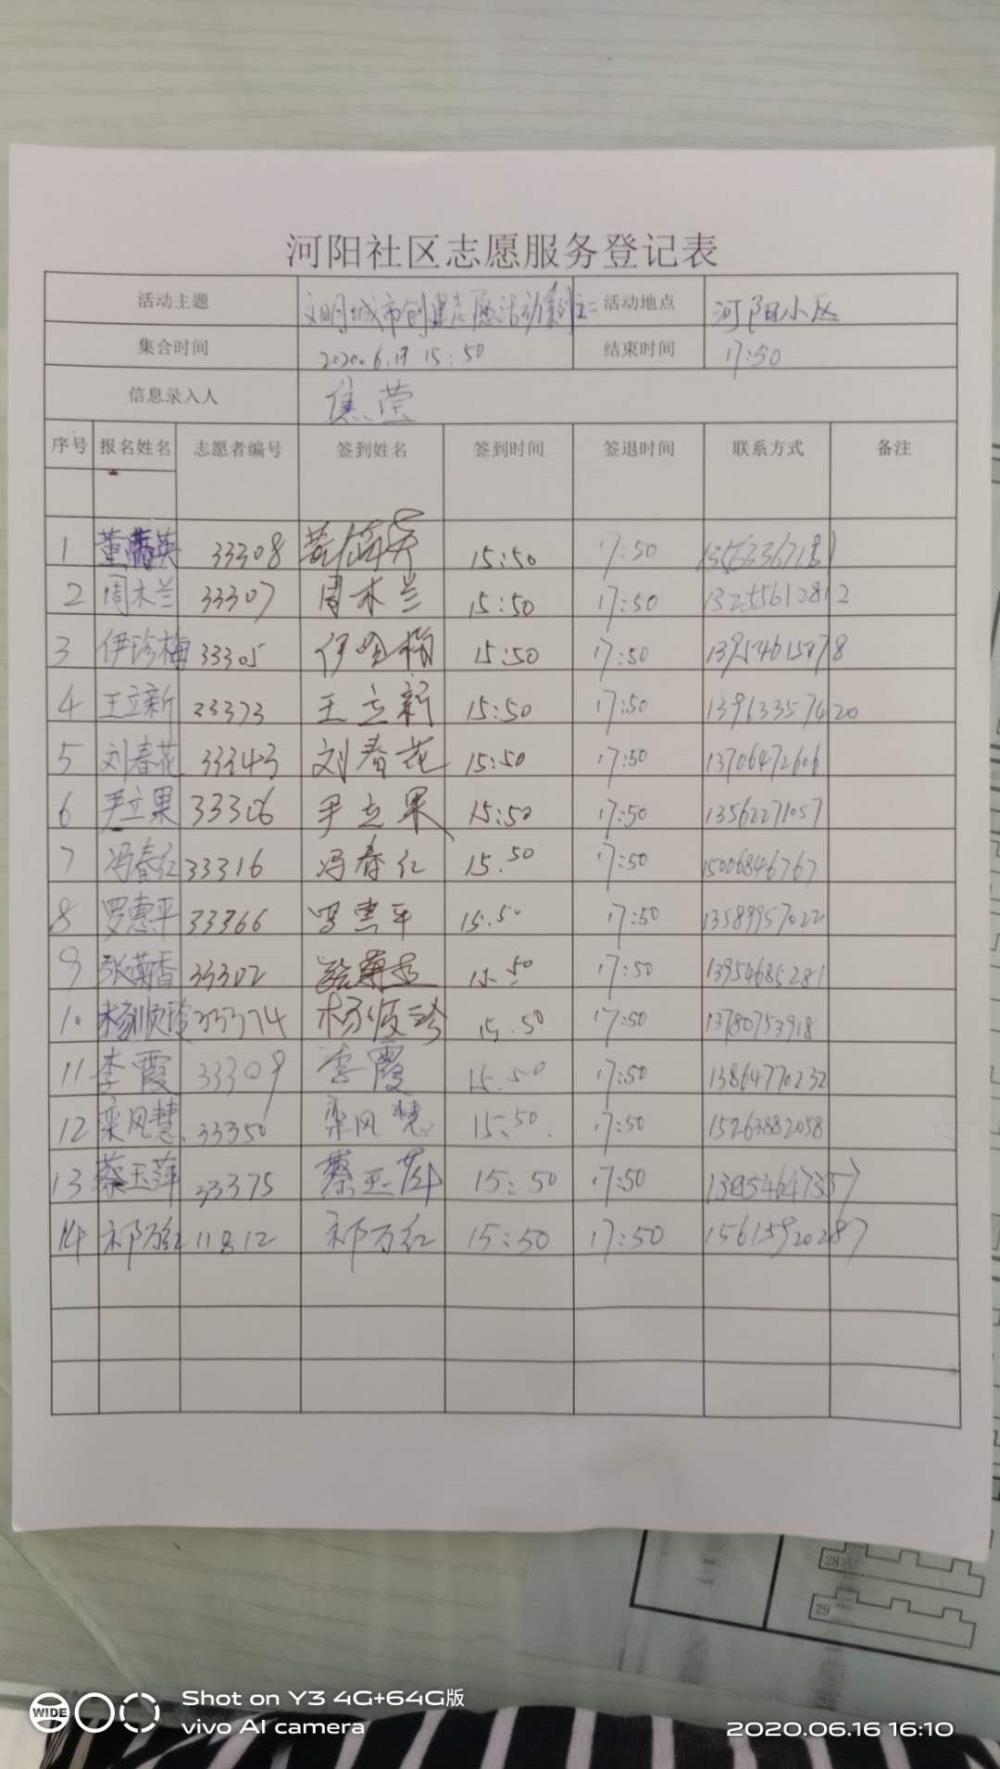 河阳社区志愿服务登记表
活动主题 文明城市创建志愿活动 活动地点 河阳小区
集合时间 15:50 结束时间 17:50
信息录入人 焦荣
序号 报名姓名 志愿者编号 签到姓名 签到时间 签退时间 联系方式 备注
1 董 英 33308 15:50 17:50
2 周木兰 33307 周木兰 15:50 17:50 13255612812
3 伊珍梅 33305 伊 梅 15:50 17:50
4 王立新 33373 王立新 15:50 17:50 13963357420
5 刘春花 33343 刘春花 15:50 17:50 13706472606
6 尹立果 33306 尹立果 15:50 17:50 13562271057
7 冯春红 33316 冯春红 15.50 17:50 15006846767
8 罗惠平 33366 罗惠平 15.50 17:50 13589957022
9 张菊香 33302 15.50 17:50 13954685281
10 杨顺珍 33374 杨顺珍 15.50 17:50 13780753918
11 李霞 33309 李霞 15.50 17:50 13864770232
12 栾风慧 33350 栾风慧 15.50. 17:50 15263882058
13 蔡玉萍 33375 蔡玉萍 15:50 17:50
14 祁万红 11812 祁万红 15:50 17:50 15615920287
28
29
WIDE
Shot on Y3 4G+64G版
vivo AI camera
2020.06.16 16:10